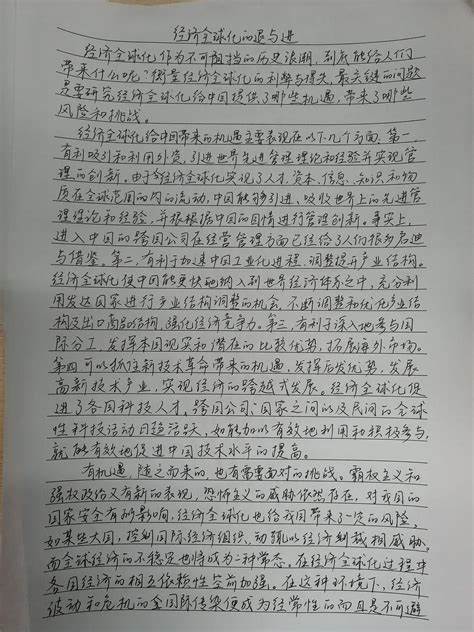 经济全球化的退与进
经济全球化,作为不可阻挡的历史浪潮,到底能给人们
带来什么呢?衡量经济全球化的利弊与得失,最关键的问题
是要研究经济全球化给中国提供了哪些机遇,带来了哪些
风险和挑战。
经济全球化给中国带来的机遇主要表现在以下几个方面,第一,
有利吸引和利用外资,引进世界先进管理理论和经验并实现管
理的创新。由于经济全球化实现了人才、资本、信息、知识和物
质在全球范围内的流动,中国能够引进、吸收世界上的先进管
理理论和经验,并根据中国的国情进行管理创新。事实上,
进入中国的跨国公司在经营管理方面已经给了人们很多启迪
与借鉴。第二,有利于加速中国工业化进程,调整提升产业结构。
经济全球化使中国能更快地纳入到世界经济体系之中,充分利
用发达国家进行产业结构调整的机会,不断调整和优化产业结
构及出口商品结构,强化经济竞争力。第三,有利于深入地参与国
际分工,发挥本国现实和潜在的比较优势,拓展海外市场。
第四,可以抓住新技术革命带来的机遇,发挥后发优势,发展
高新技术产业,实现经济的跨越式发展。经济全球化促
进了各国科技人才、跨国公司、国家之间以及民间的全球
性科技活动日趋活跃,如能加以有效地利用和积极参与,
就能有效地促进中国技术水平的提高。
有机遇,随之而来的,也有需要面对的挑战。霸权主义和
强权政治又有新的表现,恐怖主义的威胁依然存在,对我国的
国家安全有所影响,经济全球化也给我国带来了一定的风险。
如某些大国,控制国际经济组织,动辄以经济制裁相威胁。
而全球经济的不稳定也将成为一种常态。在经济全球化过程中
各国经济的相互依赖性空前加强。在这种环境下,经济
波动和危机的全国际传染便成为经常性的而且是不可避